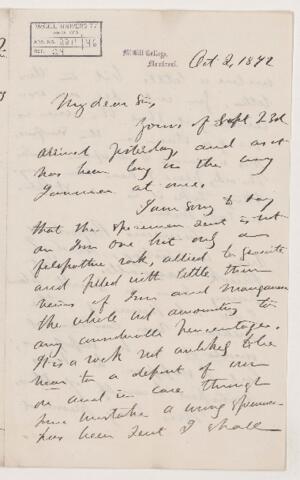 McGILL UNIVERSITY
ARCHIVES
ACC. NO. 2211/46
REF. 24
McGill College,
Montreal.
Oct 2, 1872
My dear Sir,
Yours of Sept 23d
arrived yesterday, and as it
has been long on the way
I answer at once.
I am sorry to say
that the specimen sent is not
an Iron ore but only a
felspathic rock, allied to
and filled with little thin
veins of Iron and manganese
the whole not amounting to
any considerable percentages.
It is a rock not unlikely to be
near to a deposit of iron
ore and in case through
some mistake a wrong specimen
has been sent I shall